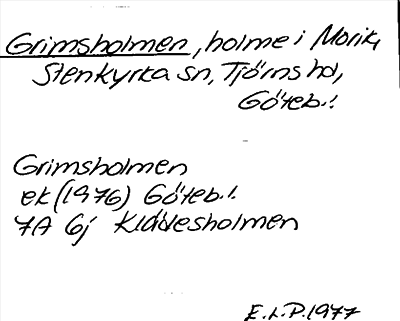 Grimsholmen, holme i Morik,
Stenkyrka sn, Tjörns hd,
Göteb.l.
Grimsholmen
ek (1976) Göteb.l.
7A 6j Kläddesholmen
E.L.P. 1977